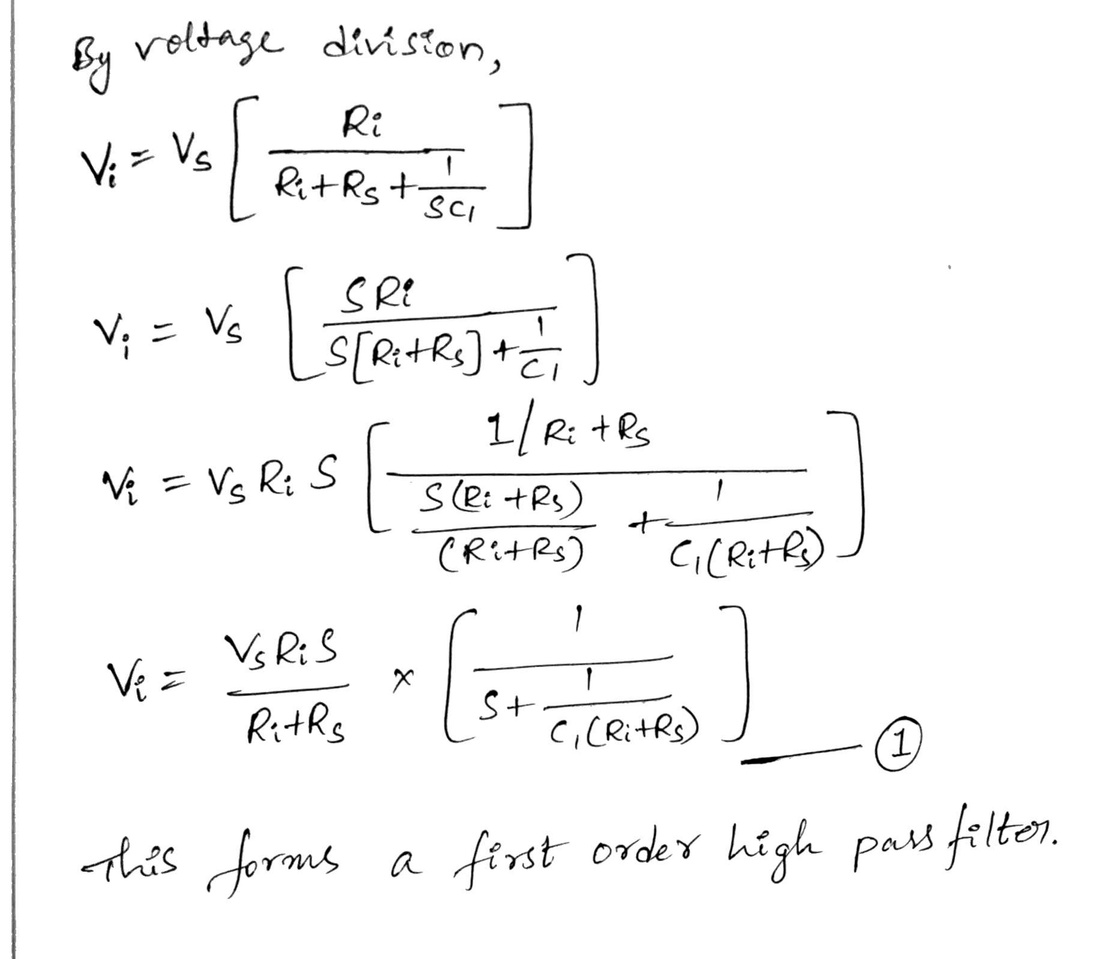 By voltage division,
Vi = Vs [ Ri / (Ri + Rs + 1/SC1) ]
Vi = Vs [ SRi / (S[Ri+Rs] + 1/C1) ]
Vi = Vs Ri S [ (1/Ri + Rs) / (S(Ri+Rs)/(Ri+Rs) + 1/C1(Ri+Rs)) ]
Vi = VsRiS / (Ri+Rs) × [ 1 / (S + 1/C1(Ri+Rs)) ] — ①
This forms a first order high pass filter.